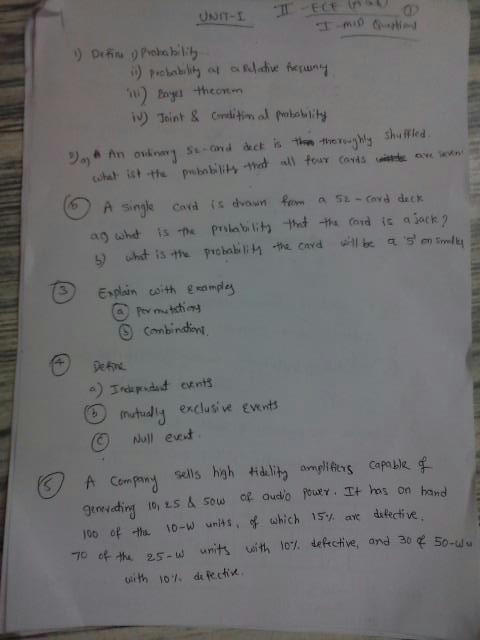 UNIT-I II - ECE ①
I - MID Questions
1) Define i) Probability
ii) Probability as a Relative frequency
iii) Bayes theorem
iv) Joint & Conditional probability
2) a) An ordinary 52-card deck is thoroughly shuffled.
what ist the probability that all four cards are seven
⑥ A single card is drawn from a 52-card deck
a) what is the probability that the card is a jack?
b) what is the probability the card will be a '5' or smaller
③ Explain with examples
ⓐ permutations
ⓑ Combinations.
④ Define
a) Independent events
ⓑ mutually exclusive events
ⓒ Null event.
⑤ A Company sells high fidelity amplifiers capable of
generating 10, 25 & 50W of audio power. It has on hand
100 of the 10-W units, of which 15% are defective.
70 of the 25-W units with 10% defective, and 30 of 50-W
with 10% defective.